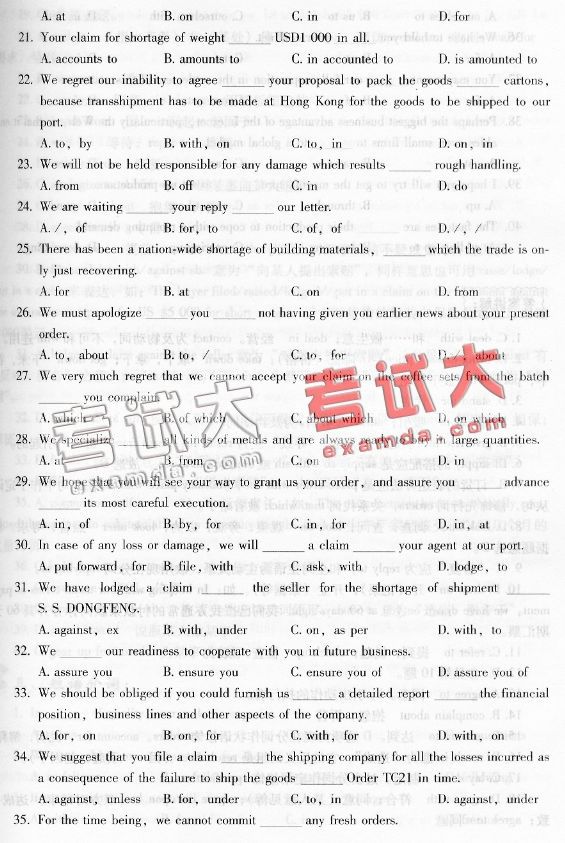 A. at B. on C. in D. for
21. Your claim for shortage of weight ______ USD1 000 in all.
A. accounts to B. amounts to C. in accounted to D. is amounted to
22. We regret our inability to agree ______ your proposal to pack the goods ______ cartons,
because transshipment has to be made at Hong Kong for the goods to be shipped to our
port.
A. to, by B. with, on C. to, in D. on, in
23. We will not be held responsible for any damage which results ______ rough handling.
A. from B. off C. in D. do
24. We are waiting ______ your reply ______ our letter.
A. /, of B. for, to C. of, of D. /, /
25. There has been a nation-wide shortage of building materials, ______ which the trade is on-
ly just recovering.
A. for B. at C. on D. from
26. We must apologize ______ you ______ not having given you earlier news about your present
order.
A. to, about B. to, / C. to, for D. /, about
27. We very much regret that we cannot accept your claim on the coffee sets from the batch
______ you complain.
A. which B. of which C. about which D. on which
28. We specialize ______ all kinds of metals and are always ready to buy in large quantities.
A. at B. from C. on D. in
29. We hope that you will see your way to grant us our order, and assure you ______ advance
______ its most careful execution.
A. in, of B. by, for C. in, for D. in, at
30. In case of any loss or damage, we will ______ a claim ______ your agent at our port.
A. put forward, for B. file, with C. ask, with D. lodge, to
31. We have lodged a claim ______ the seller for the shortage of shipment ______
S. S. DONGFENG.
A. against, ex B. with, under C. on, as per D. with, to
32. We ______ our readiness to cooperate with you in future business.
A. assure you B. ensure you C. ensure you of D. assure you of
33. We should be obliged if you could furnish us ______ a detailed report ______ the financial
position, business lines and other aspects of the company.
A. for, on B. on, for C. with, for D. with, on
34. We suggest that you file a claim ______ the shipping company for all the losses incurred as
a consequence of the failure to ship the goods ______ Order TC21 in time.
A. against, unless B. for, under C. to, in D. against, under
35. For the time being, we cannot commit ______ any fresh orders.
考试大 考试大
examda.com examda.com